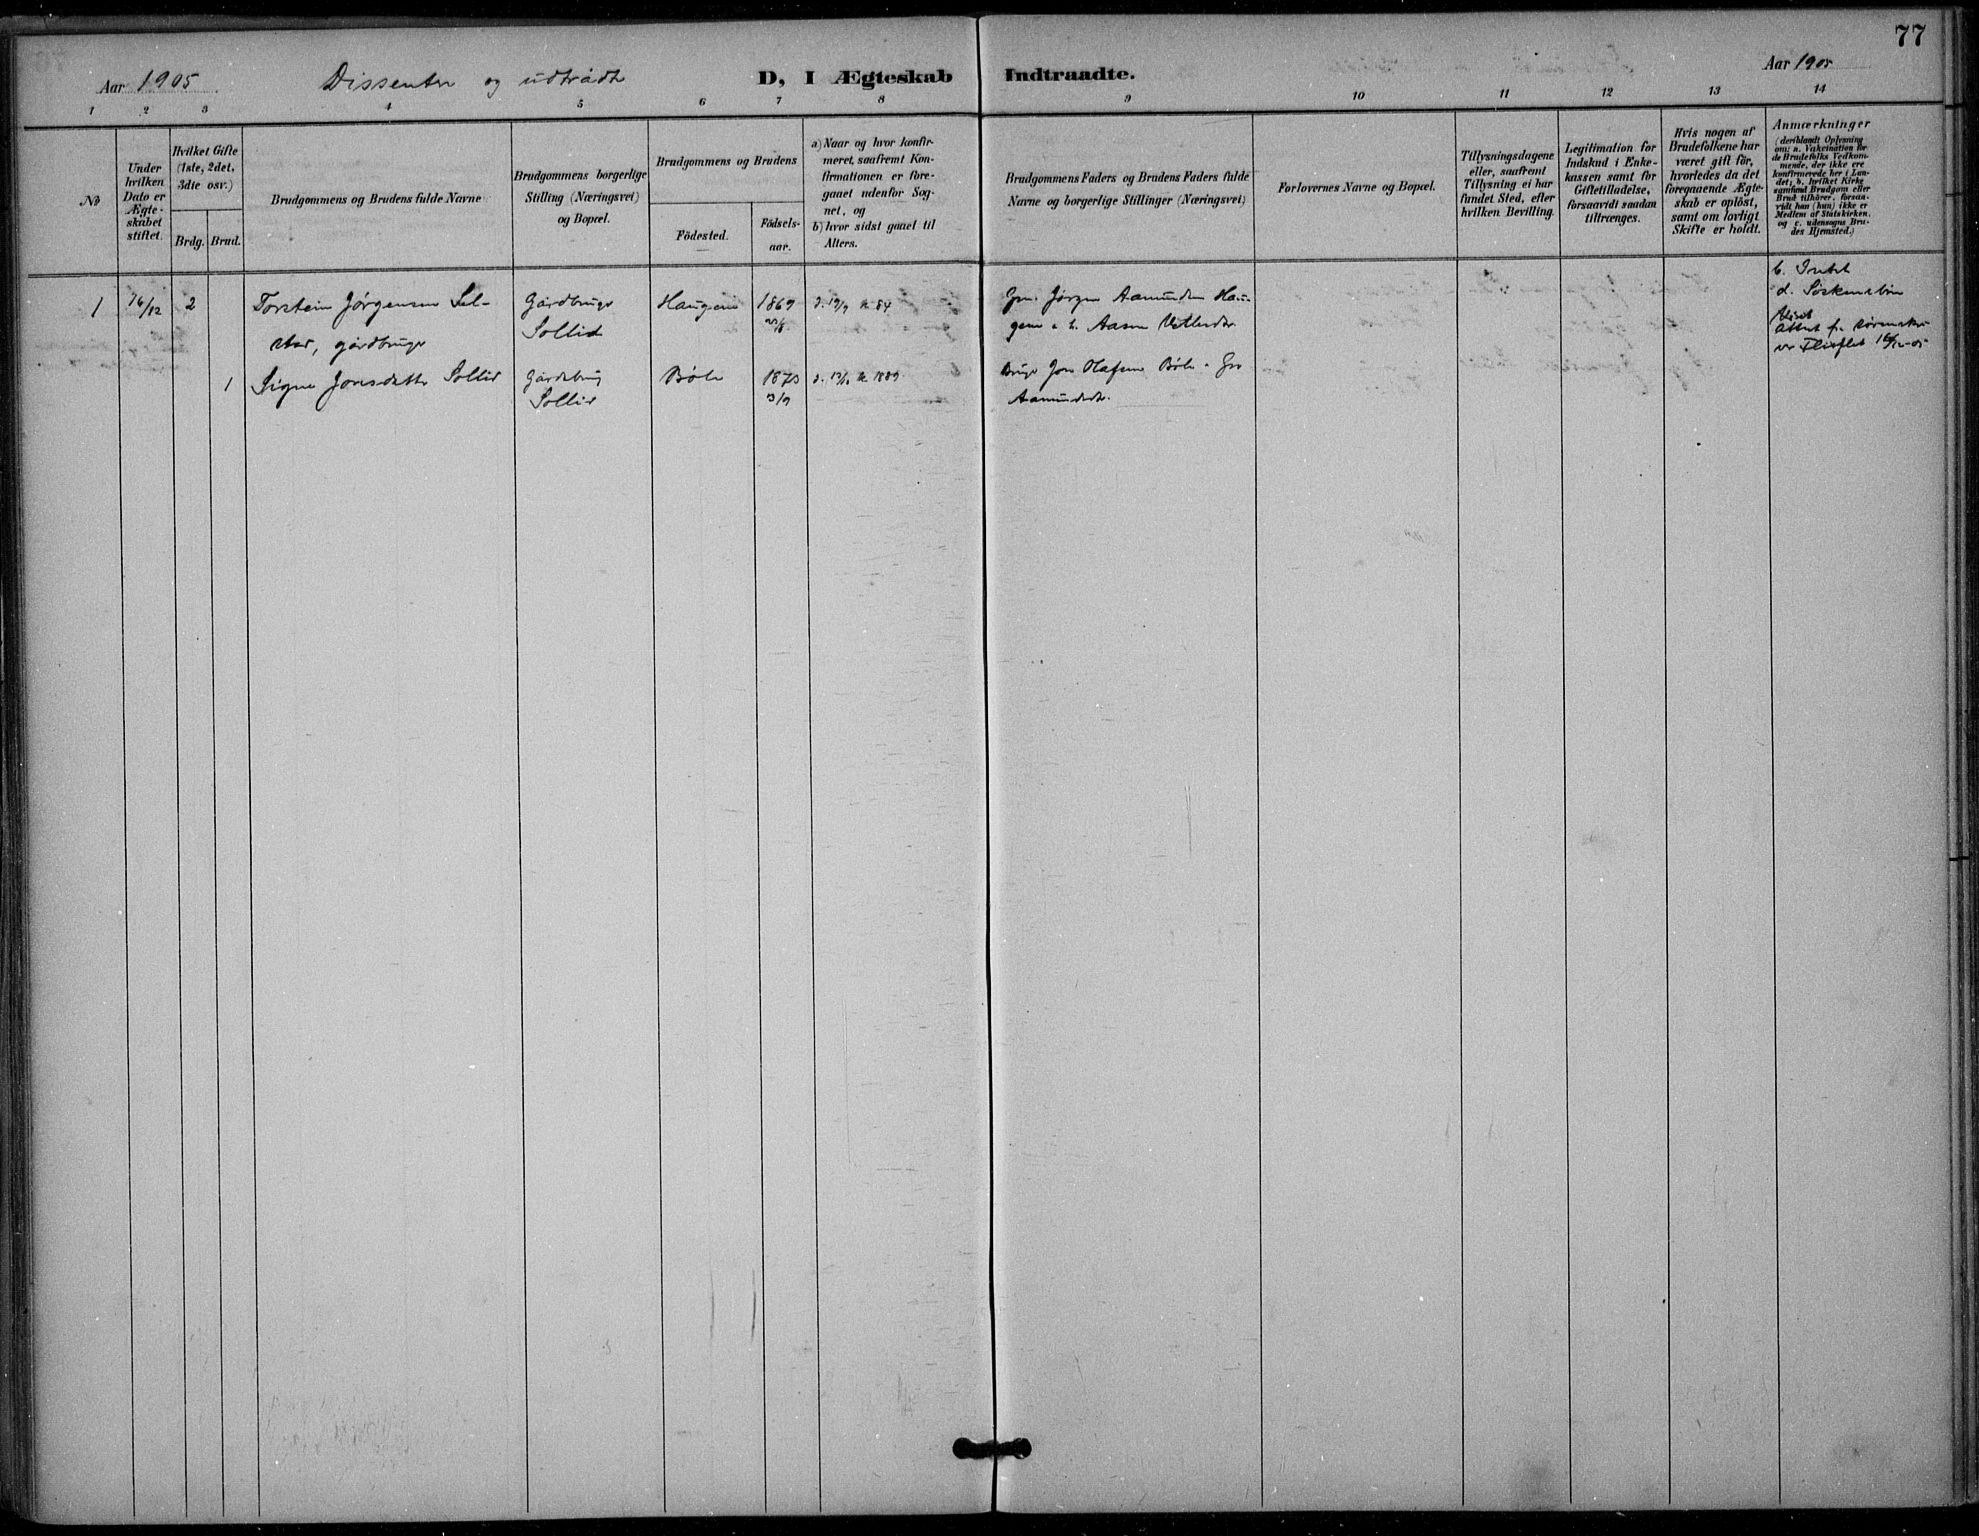 77
Aar 1905
Dissenter og udtrådte
D, I Ægteskab Indtraadte.
Aar 1905
1 2 3 4 5 6 7 8 9 10 11 12 13 14
No
Under
hvilken
Dato er
Ægte-
skabet
stiftet.
Hvilket Gifte
(1ste, 2det,
3die osv.)
Brdg. Brud.
Brudgommens og Brudens fulde Navne
Brudgommens borgerlige
Stilling (Næringsvei)
og Bopæl.
Brudgommens og Brudens
Födested.
Födsels-
aar.
a) Naar og hvor konfir-
meret, saafremt Kon-
firmationen er fore-
gaaet udenfor Sog-
net, og
b) hvor sidst gaaet til
Alters.
Brudgommens Faders og Brudens Faders fulde
Navne og borgerlige Stillinger (Næringsvei)
Forlovernes Navne og Bopæl.
Tillysningsdagene
eller, saafremt
Tillysning ei har
fundet Sted, efter
hvilken Bevilling.
Legitimation for
Indskud i Enke-
kassen samt for
Giftetilladelse,
forsaavidt saadan
tiltrænges.
Hvis nogen af
Brudefolkene har
været gift før,
hvorledes da det
foregaaende Ægte-
skab er oplöst,
samt om lovligt
Skifte er holdt.
Anmærkninger
(deriblandt Oplysning
om: a. Vakcination for
de Brudefolks Vedkom-
mende, der ikke ere
konfirmerede her i Lan-
det; b. hvilket Kirke-
samfund Brudgom eller
Brud tilhörer, forsaa-
vidt han (hun) ikke er
Medlem af Statskirken,
og c. udensogns Bru-
des Hjemsted.)
1 16/12 2 Torstein Jørgensen Sel-
stad, gårdbruger
Gårdbruger
Sollid
Haugen 1869
d. 19/9 84
Jørgen Aamundsen Hau-
gene Aasne
1 Signe Jonsdatter Sollid
Gårdbrug
Sollid
Bøle 1873
13/9
1889
Jon Olafsen Bøle
Aamundsdr.